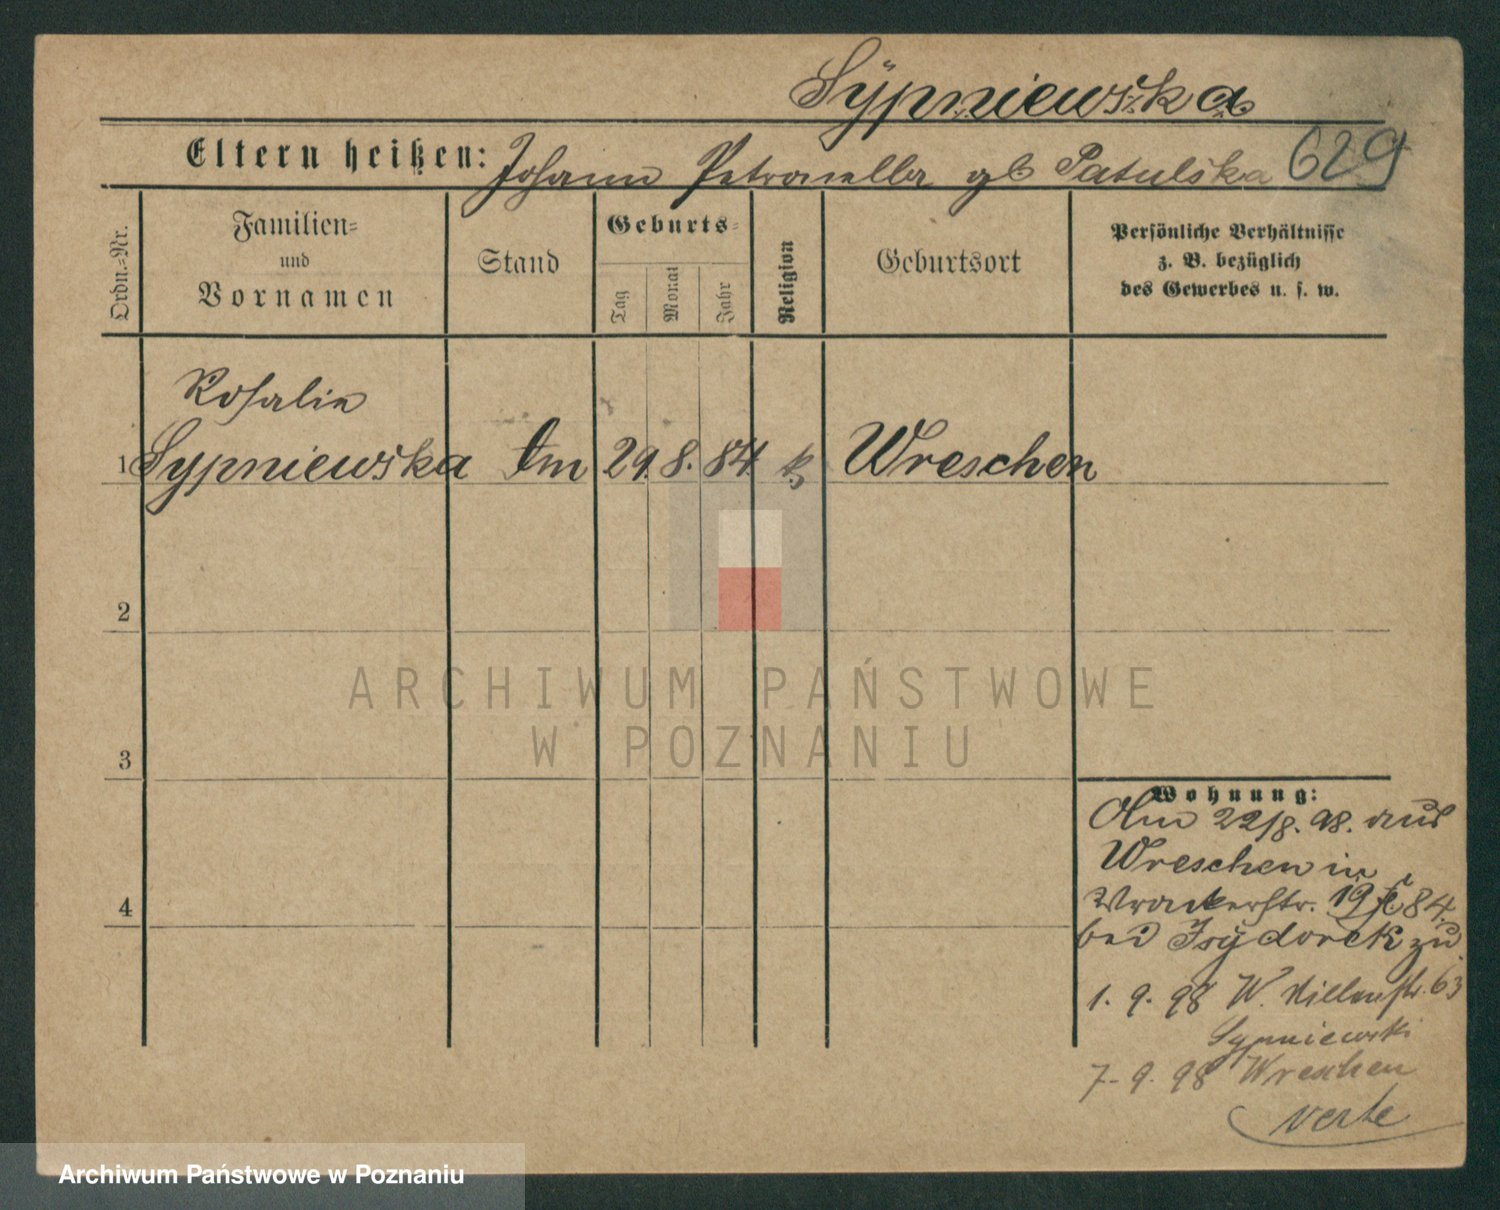 Sÿpniewska
Eltern heißen: Johann Petronella gb Patulska 629
Ordn.-Nr.
Familien-
und
Vornamen
Stand
Geburts-
Tag
Monat
Jahr
Religion
Geburtsort
Persönliche Verhältnisse
z. B. bezüglich
des Gewerbes u. s. w.
Rosalie
1 Sypniewska 29. 8. 84 k Wreschen
2
3
4
ARCHIWUM PAŃSTWOWE
W POZNANIU
Wohnung:
Am 22/8. 98. aus
Wreschen in
19 84
bei zu
1. 9. 98 W. 63
Sypniewski
7. 9. 98 Wreschen
verte
Archiwum Państwowe w Poznaniu